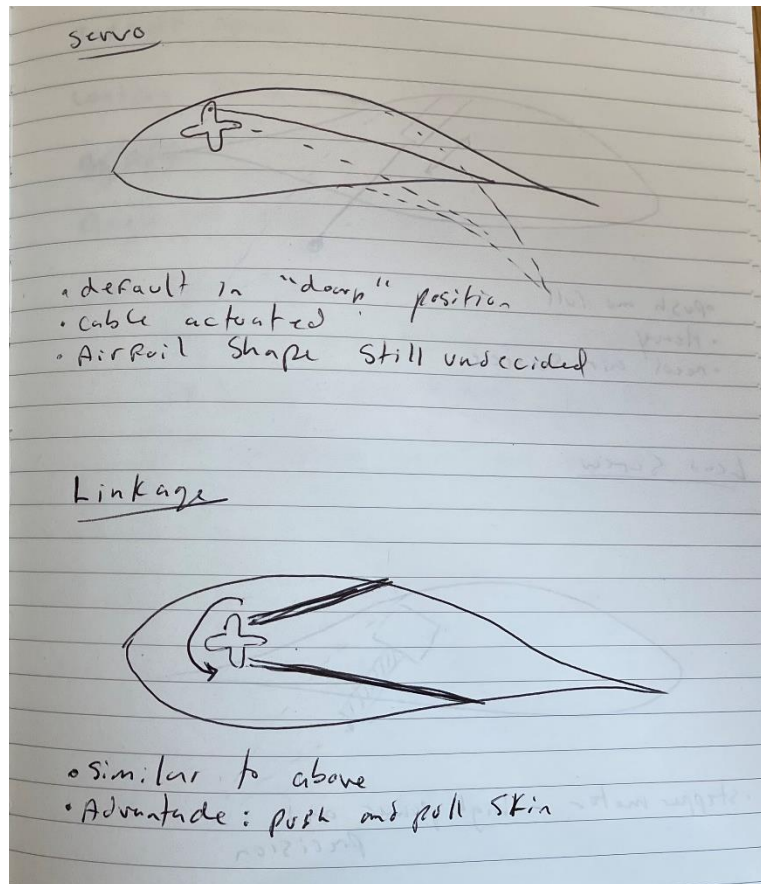 Servo
• default in "down" position
• cable actuated
• Airfoil Shape Still undecided
Linkage
• Similar to above
• Advantade: push and pull Skin